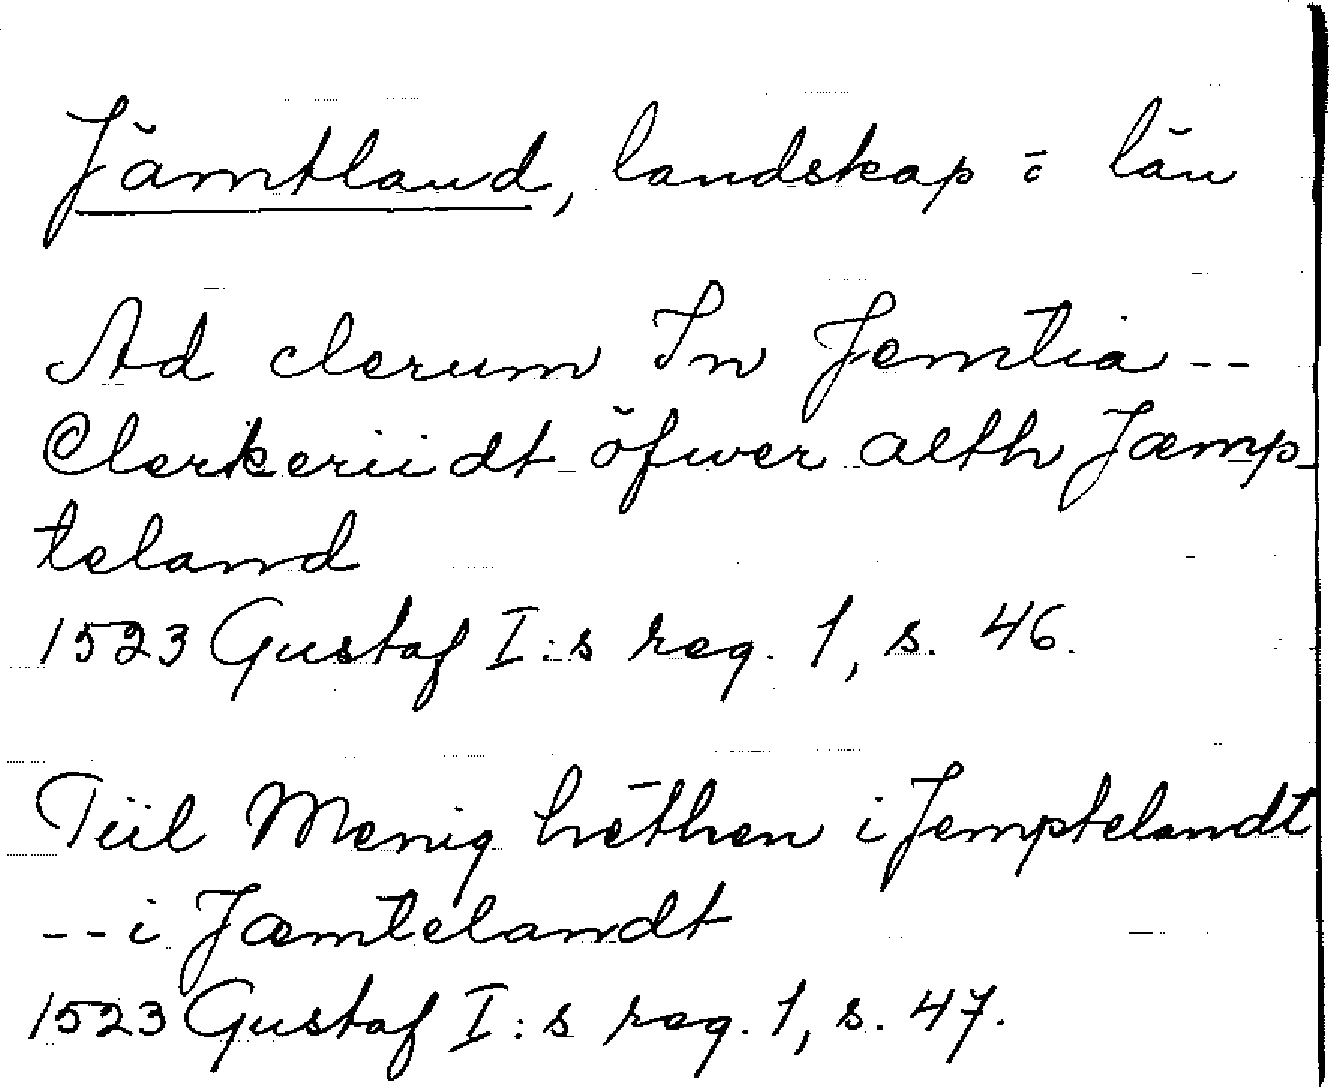 Jämtland, landskap o län
Ad clerum In Jemtia --
Clerkeriidt öfwer alth Jæmp-
teland
1523 Gustaf I:s reg. 1, s. 46.
Tiil Menig hēthen i Jemptelandt
-- i Jæmtelandt
1523 Gustaf I:s reg. 1, s. 47.